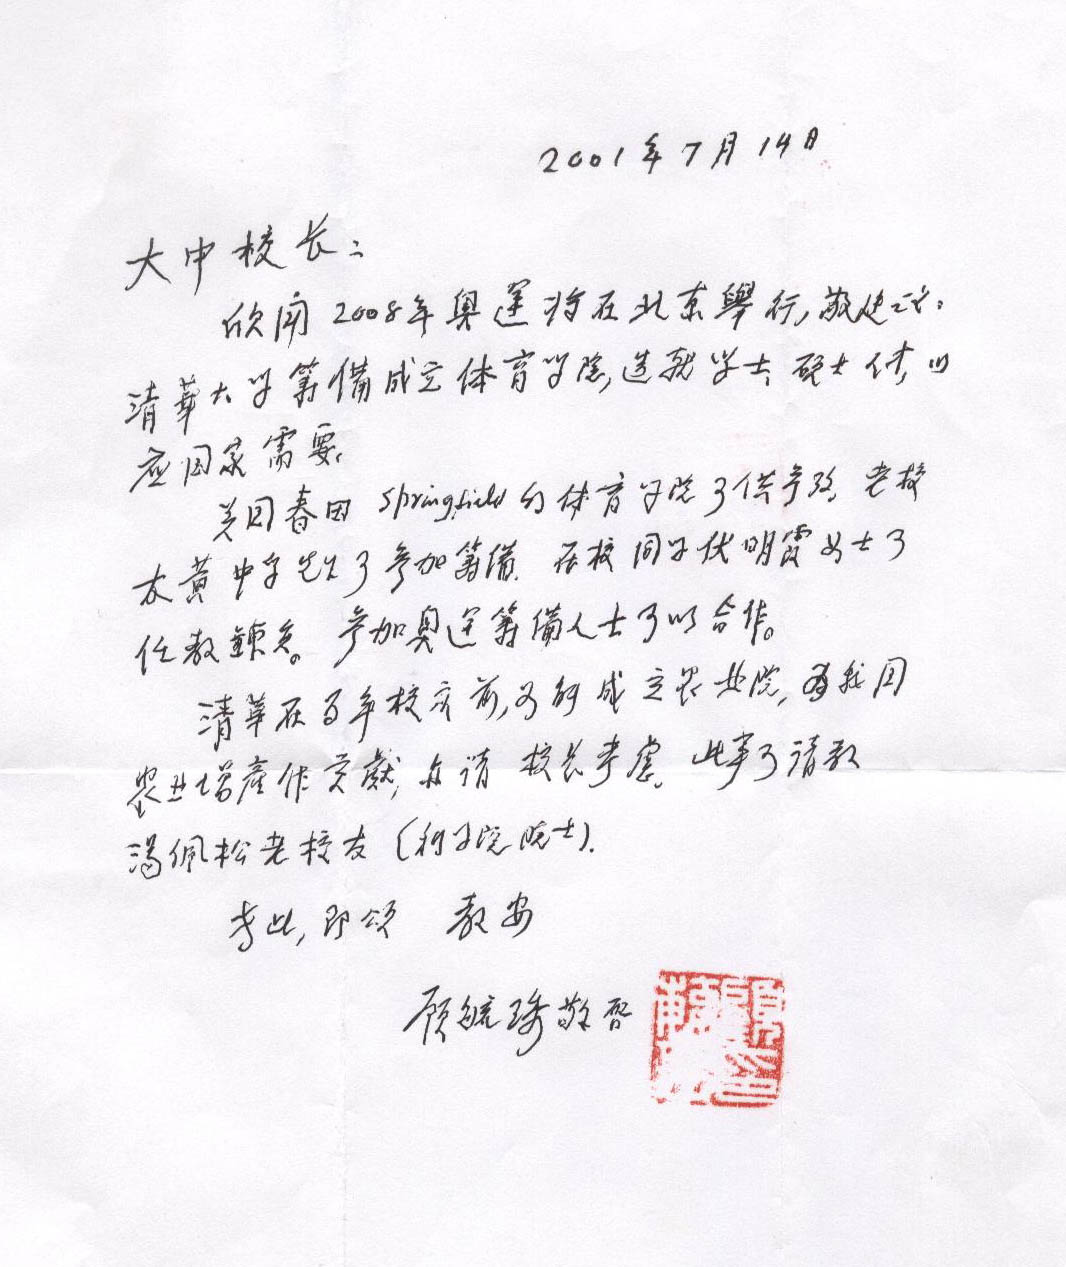 2001年7月14日
大中校长：
欣闻2008年奥运将在北京舉行,敬建议：
清華大学筹備成立体育学院,造就学士、硕士人才,以
应国家需要。
美国春田 Springfield 的体育学院可供参考。老校
友黄中孚先生可参加筹備。在校同学伏明霞女士可
任教鍊员。参加奥运筹備人士可以合作。
清華在百年校庆前,又能成立农业院,為我国
农业增產作贡献,亦请 校长考虑。此事可请教
汤佩松老校友(科学院院士).
专此,即颂 教安
顾毓琇敬啓